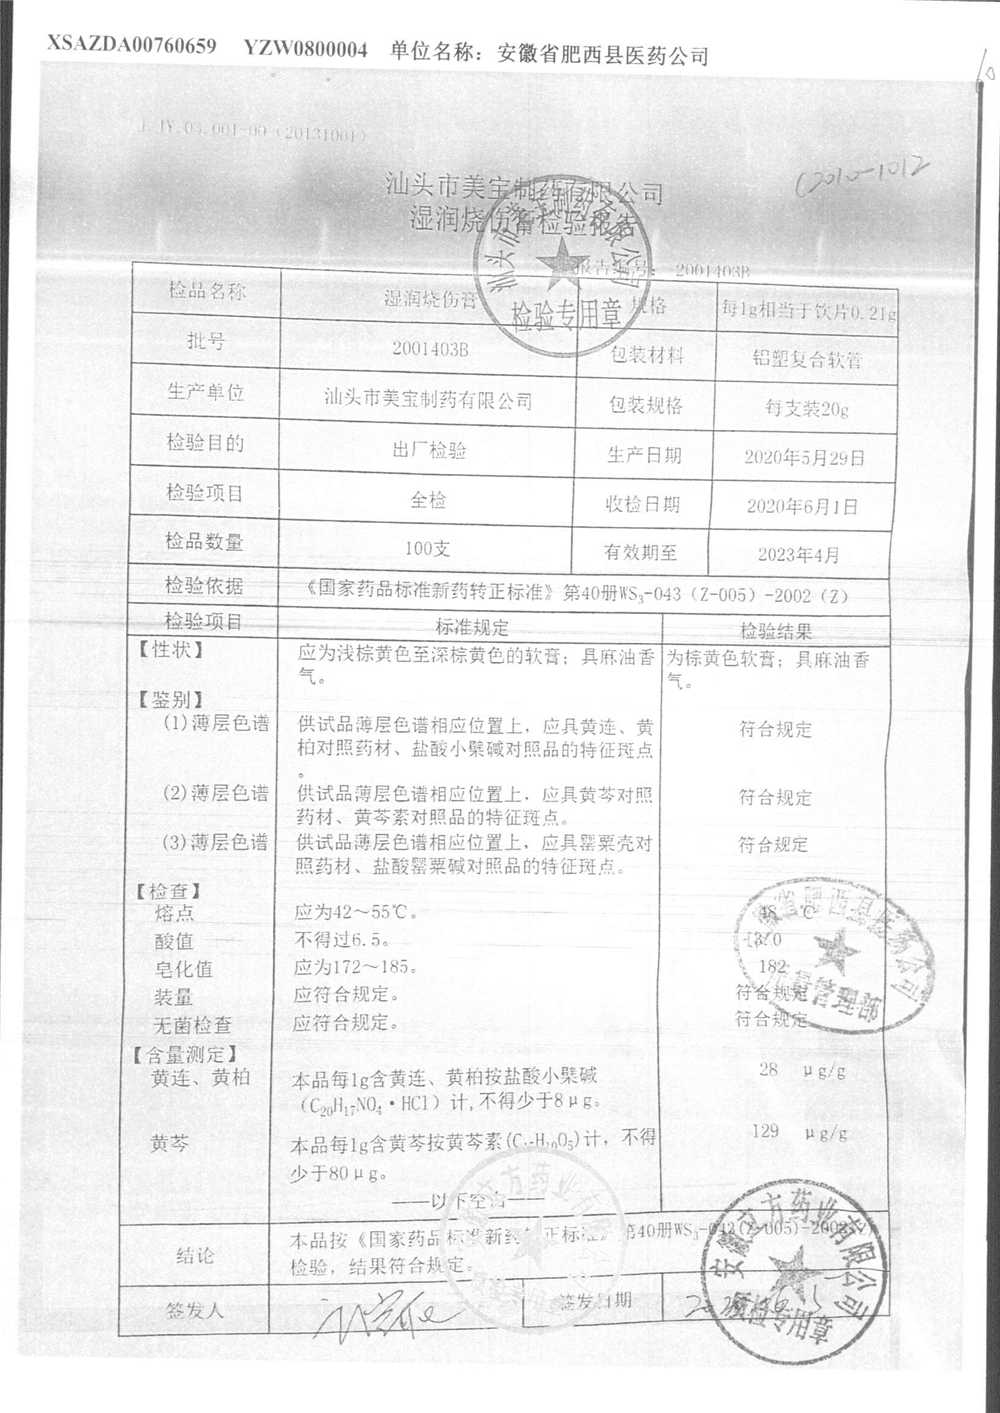 XSAZDA00760659 YZW0800004 单位名称：安徽省肥西县医药公司
JY.03.001-00（20131001）
(2010-1012
汕头市美宝制药有限公司
湿润烧伤膏检验报告
报告编号： 2001403B
检品名称 湿润烧伤膏 规格 每1g相当于饮片0.21g
批号 2001403B 包装材料 铝塑复合软管
生产单位 汕头市美宝制药有限公司 包装规格 每支装20g
检验目的 出厂检验 生产日期 2020年5月29日
检验项目 全检 收检日期 2020年6月1日
检品数量 100支 有效期至 2023年4月
检验依据 《国家药品标准新药转正标准》第40册WS3-043（Z-005）-2002（Z）
检验项目 标准规定 检验结果
【性状】 应为浅棕黄色至深棕黄色的软膏；具麻油香 为棕黄色软膏；具麻油香
气。 气。
【鉴别】
(1)薄层色谱 供试品薄层色谱相应位置上，应具黄连、黄 符合规定
柏对照药材、盐酸小檗碱对照品的特征斑点
。
(2)薄层色谱 供试品薄层色谱相应位置上，应具黄芩对照 符合规定
药材、黄芩素对照品的特征斑点。
(3)薄层色谱 供试品薄层色谱相应位置上，应具罂粟壳对 符合规定
照药材、盐酸罂粟碱对照品的特征斑点。
【检查】
熔点 应为42～55℃。 48 ℃
酸值 不得过6.5。 3.0
皂化值 应为172～185。 182
装量 应符合规定。 符合规定
无菌检查 应符合规定。 符合规定
【含量测定】
黄连、黄柏 本品每1g含黄连、黄柏按盐酸小檗碱 28 μg/g
（C20H17NO4·HCl）计,不得少于8μg。
黄芩 本品每1g含黄芩按黄芩素(C H10O5)计，不得 129 μg/g
少于80μg。
——以下空白——
结论 本品按《国家药品标准新药转正标准》第40册WS3-043(Z-005)-2002(Z)
检验，结果符合规定。
签发人 签发日期
汕头市美宝制药有限公司
检验专用章
安徽省肥西县医药公司
安徽立方药业有限公司
质检专用章